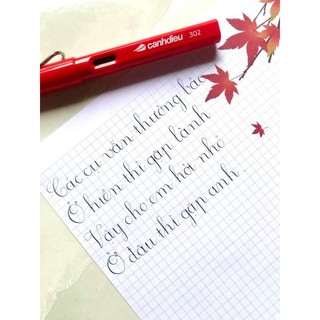 canhdieu 302
Các cụ vẫn thường bảo
Ở hiền thì gặp lành
Vậy cho em hỏi nhỏ
Ở đâu thì gặp anh.